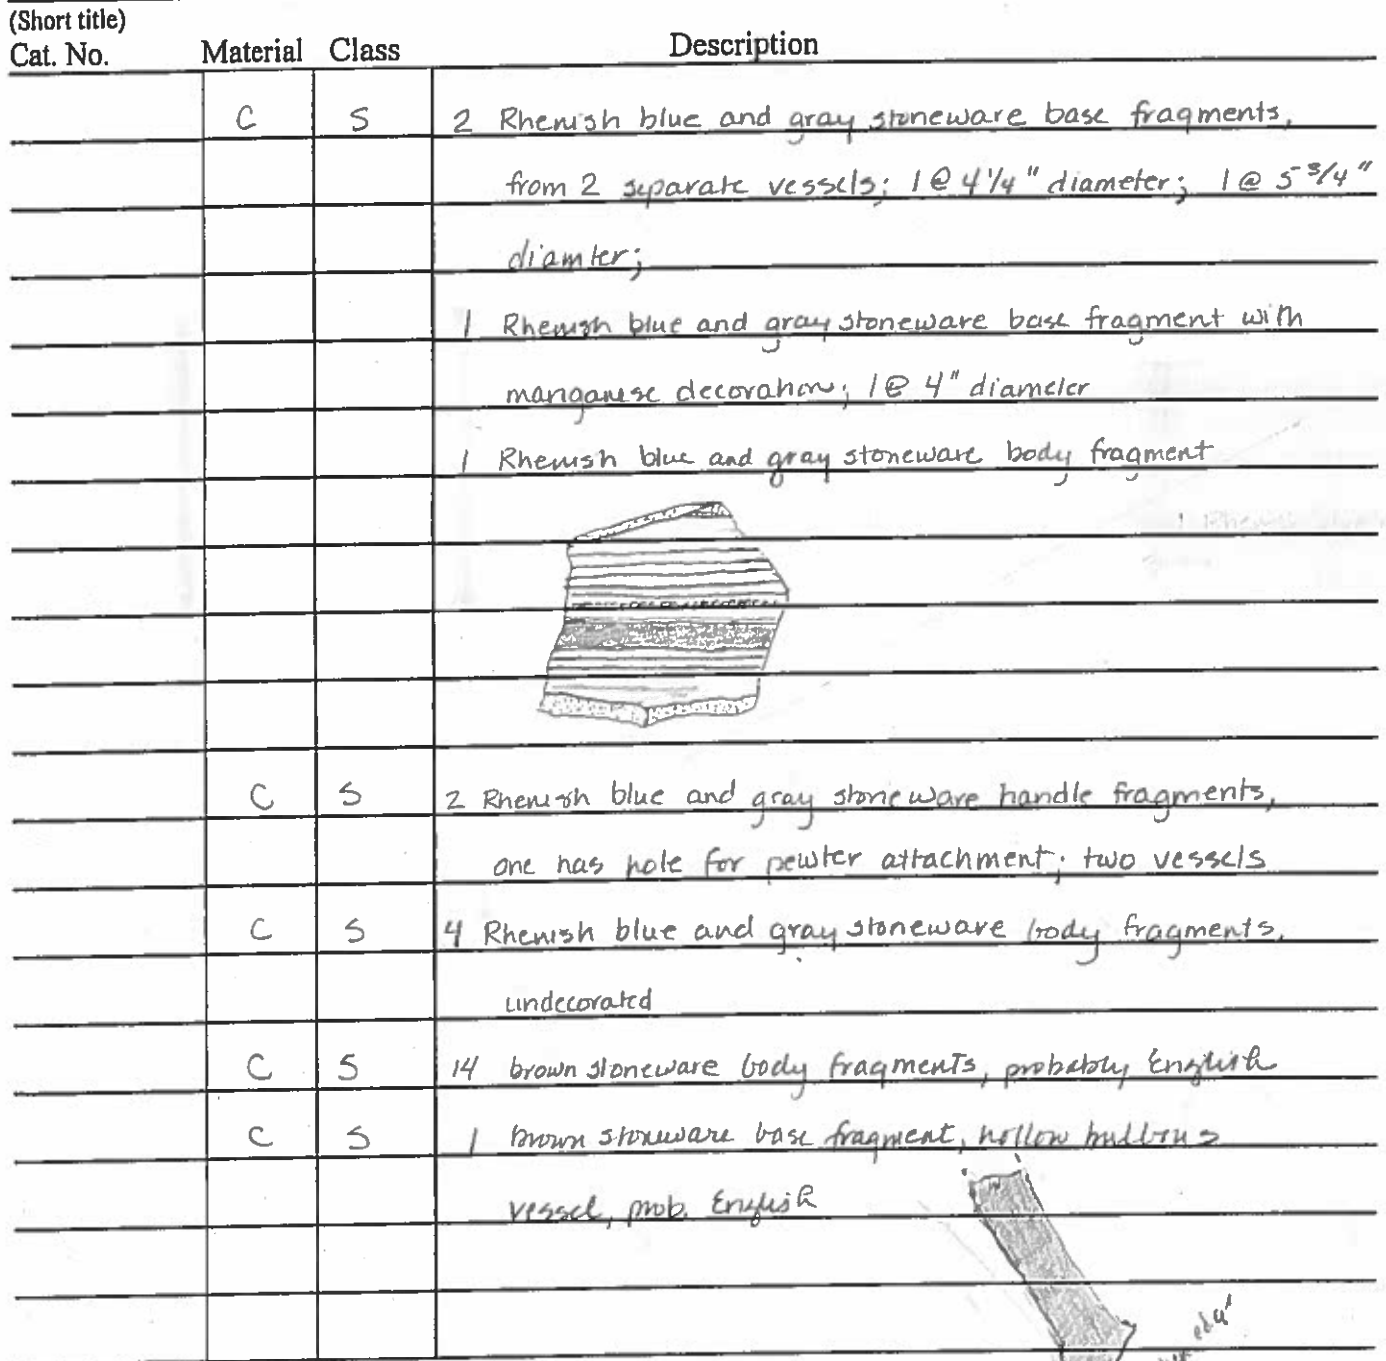 (Short title)
Cat. No. Material Class Description
C S 2 Rhenish blue and gray stoneware base fragments,
from 2 separate vessels; 1 @ 4 1/4" diameter; 1 @ 5 3/4"
diamter;
1 Rhenish blue and gray stoneware base fragment with
manganese decoration; 1 @ 4" diameter
1 Rhenish blue and gray stoneware body fragment
C S 2 Rhenish blue and gray stoneware handle fragments,
one has hole for pewter attachment; two vessels
C S 4 Rhenish blue and gray stoneware body fragments,
undecorated
C S 14 brown stoneware body fragments, probably English
C S 1 brown stoneware base fragment, hollow bulbous
vessel, prob. English